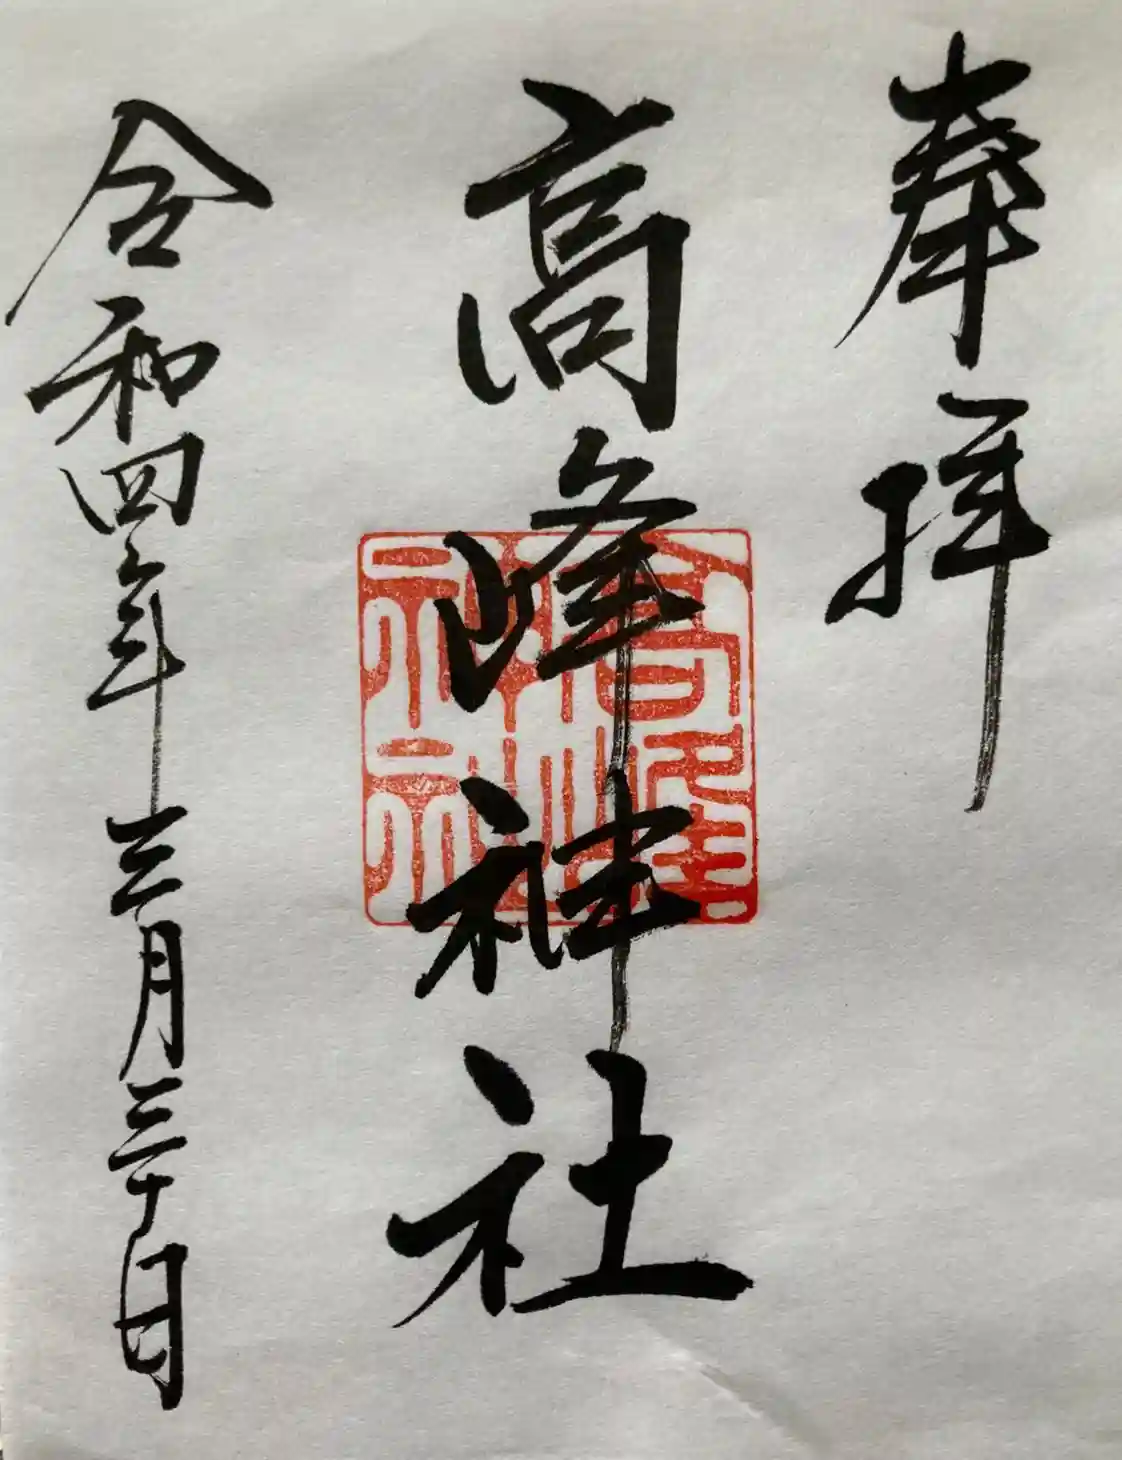 奉拝
高峰神社
令和四年三月三十日
高峰
神社